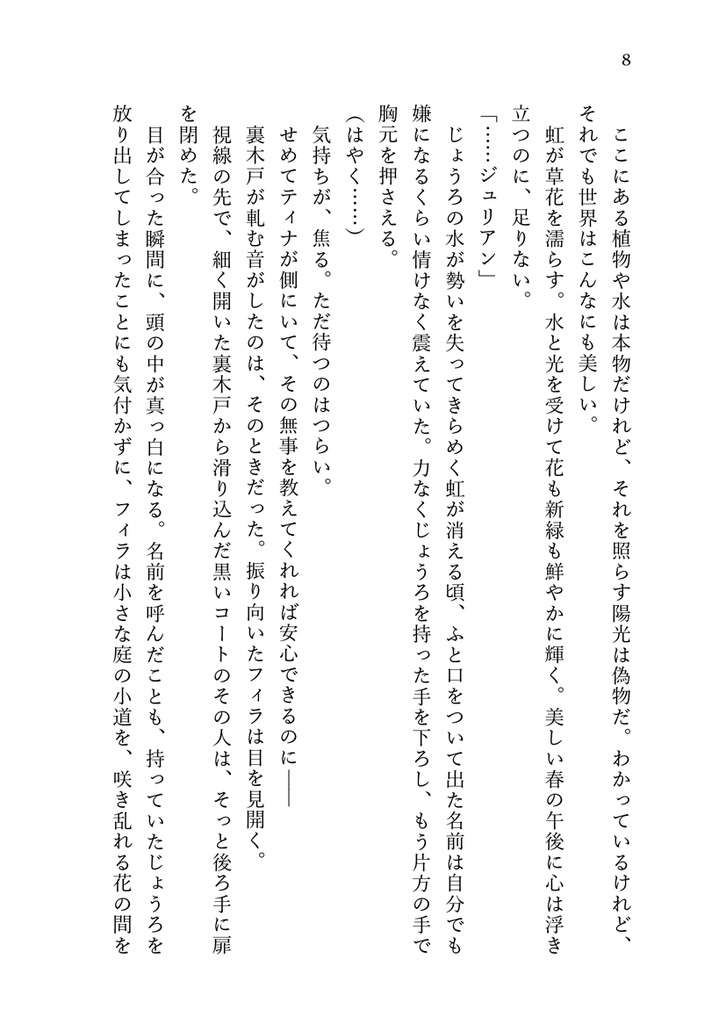 8
　ここにある植物や水は本物だけれど、それを照らす陽光は偽物だ。わかっているけれど、
それでも世界はこんなにも美しい。
　虹が草花を濡らす。水と光を受けて花も新緑も鮮やかに輝く。美しい春の午後に心は浮き
立つのに、足りない。
「……ジュリアン」
　じょうろの水が勢いを失ってきらめく虹が消える頃、ふと口をついて出た名前は自分でも
嫌になるくらい情けなく震えていた。力なくじょうろを持った手を下ろし、もう片方の手で
胸元を押さえる。
（はやく……）
　気持ちが、焦る。ただ待つのはつらい。
　せめてティナが側にいて、その無事を教えてくれれば安心できるのに――
　裏木戸が軋む音がしたのは、そのときだった。振り向いたフィラは目を見開く。
　視線の先で、細く開いた裏木戸から滑り込んだ黒いコートのその人は、そっと後ろ手に扉
を閉めた。
　目が合った瞬間に、頭の中が真っ白になる。名前を呼んだことも、持っていたじょうろを
放り出してしまったことにも気付かずに、フィラは小さな庭の小道を、咲き乱れる花の間を